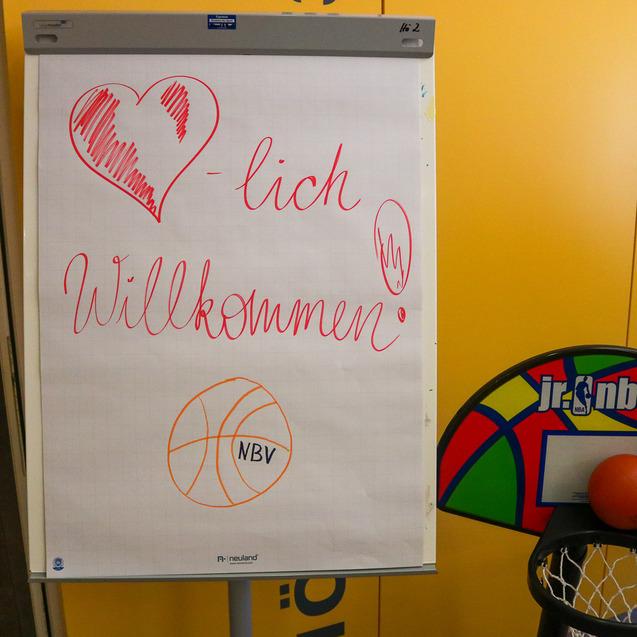 Hö 2
-lich
Willkommen!
NBV
neuland
jr. nb
NBA
HÖ